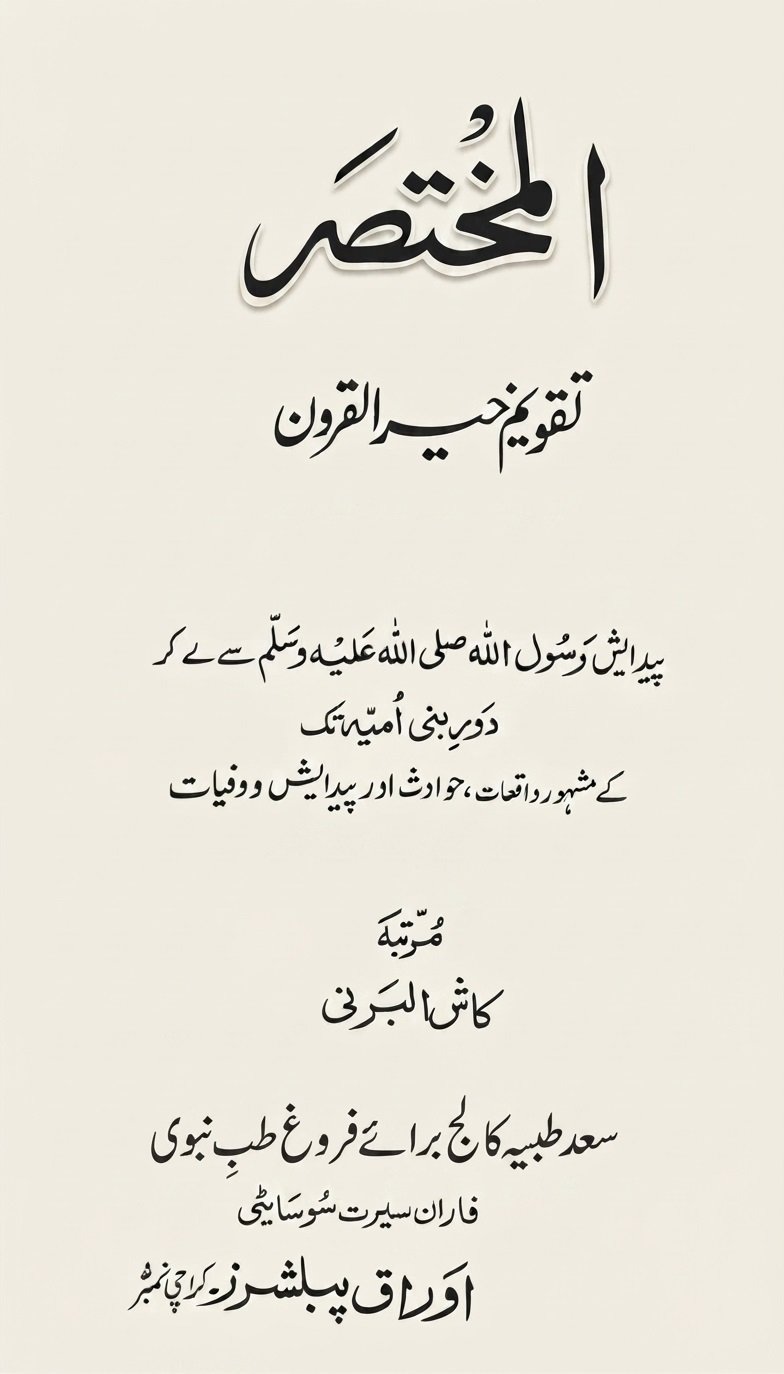 المُختصَر
تقویم خیر القرون
پیدایش رَسُول اللہ صلی اللہ عَلیْہ وسَلّم سے لے کر
دَورِ بنی اُمیّہ تک
کے مشہور واقعات، حوادث اور پیدایش و وفیات
مُرّتبہَ
کاش البَرنی
سعد طبیہ کالج برائے فروغ طبِ نبوی
فاران سیرت سُوسَایٹی
اَوراق پبلشرز۔ کراچی نمبر ۵